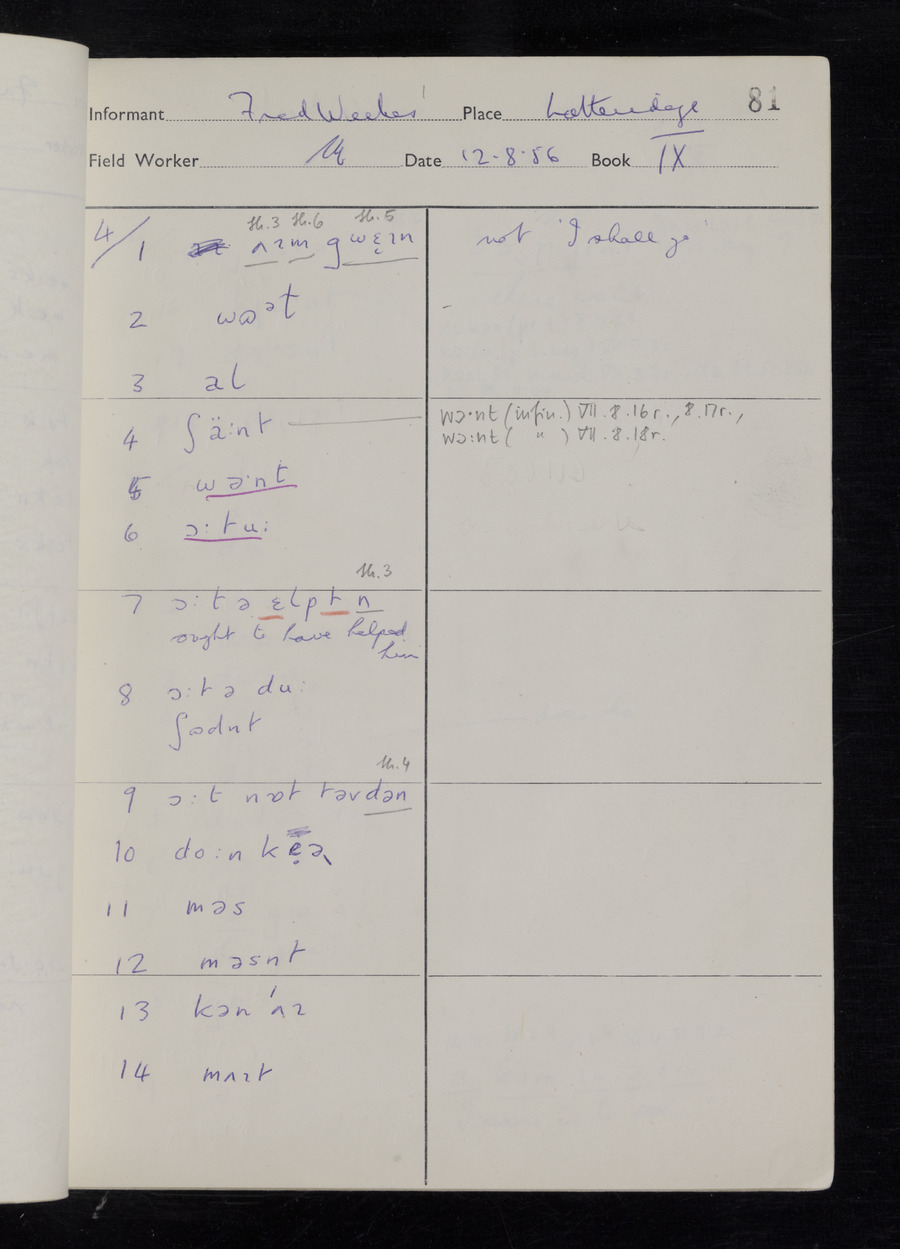 Informant Fred Weekes Place Latteridge 81
Field Worker Date 12·8·56 Book IX
th.3 th.6 th.5
4/ 1 ʌɪm gwɛ̣ɪn not 'I shall go'
2 wɒᵊt –
3 əl
4 ʃä:nt wɔ·nt (infin.) VII.8.16r., 8.17r.,
wɔ:nt ( " ) VII.8.18r.
5 wɔ:nt
6 ɔ:tu:
th.3
7 ɔ:t ə ɛlpt n
ought to have helped
him
8 ɔ:t ə du:
ʃədnt
th.4
9 ɔ:t nɒt təvdən
10 do:n kẹə
11 məs
12 məsnt
13 kən'ʌɪ
14 mʌɪt